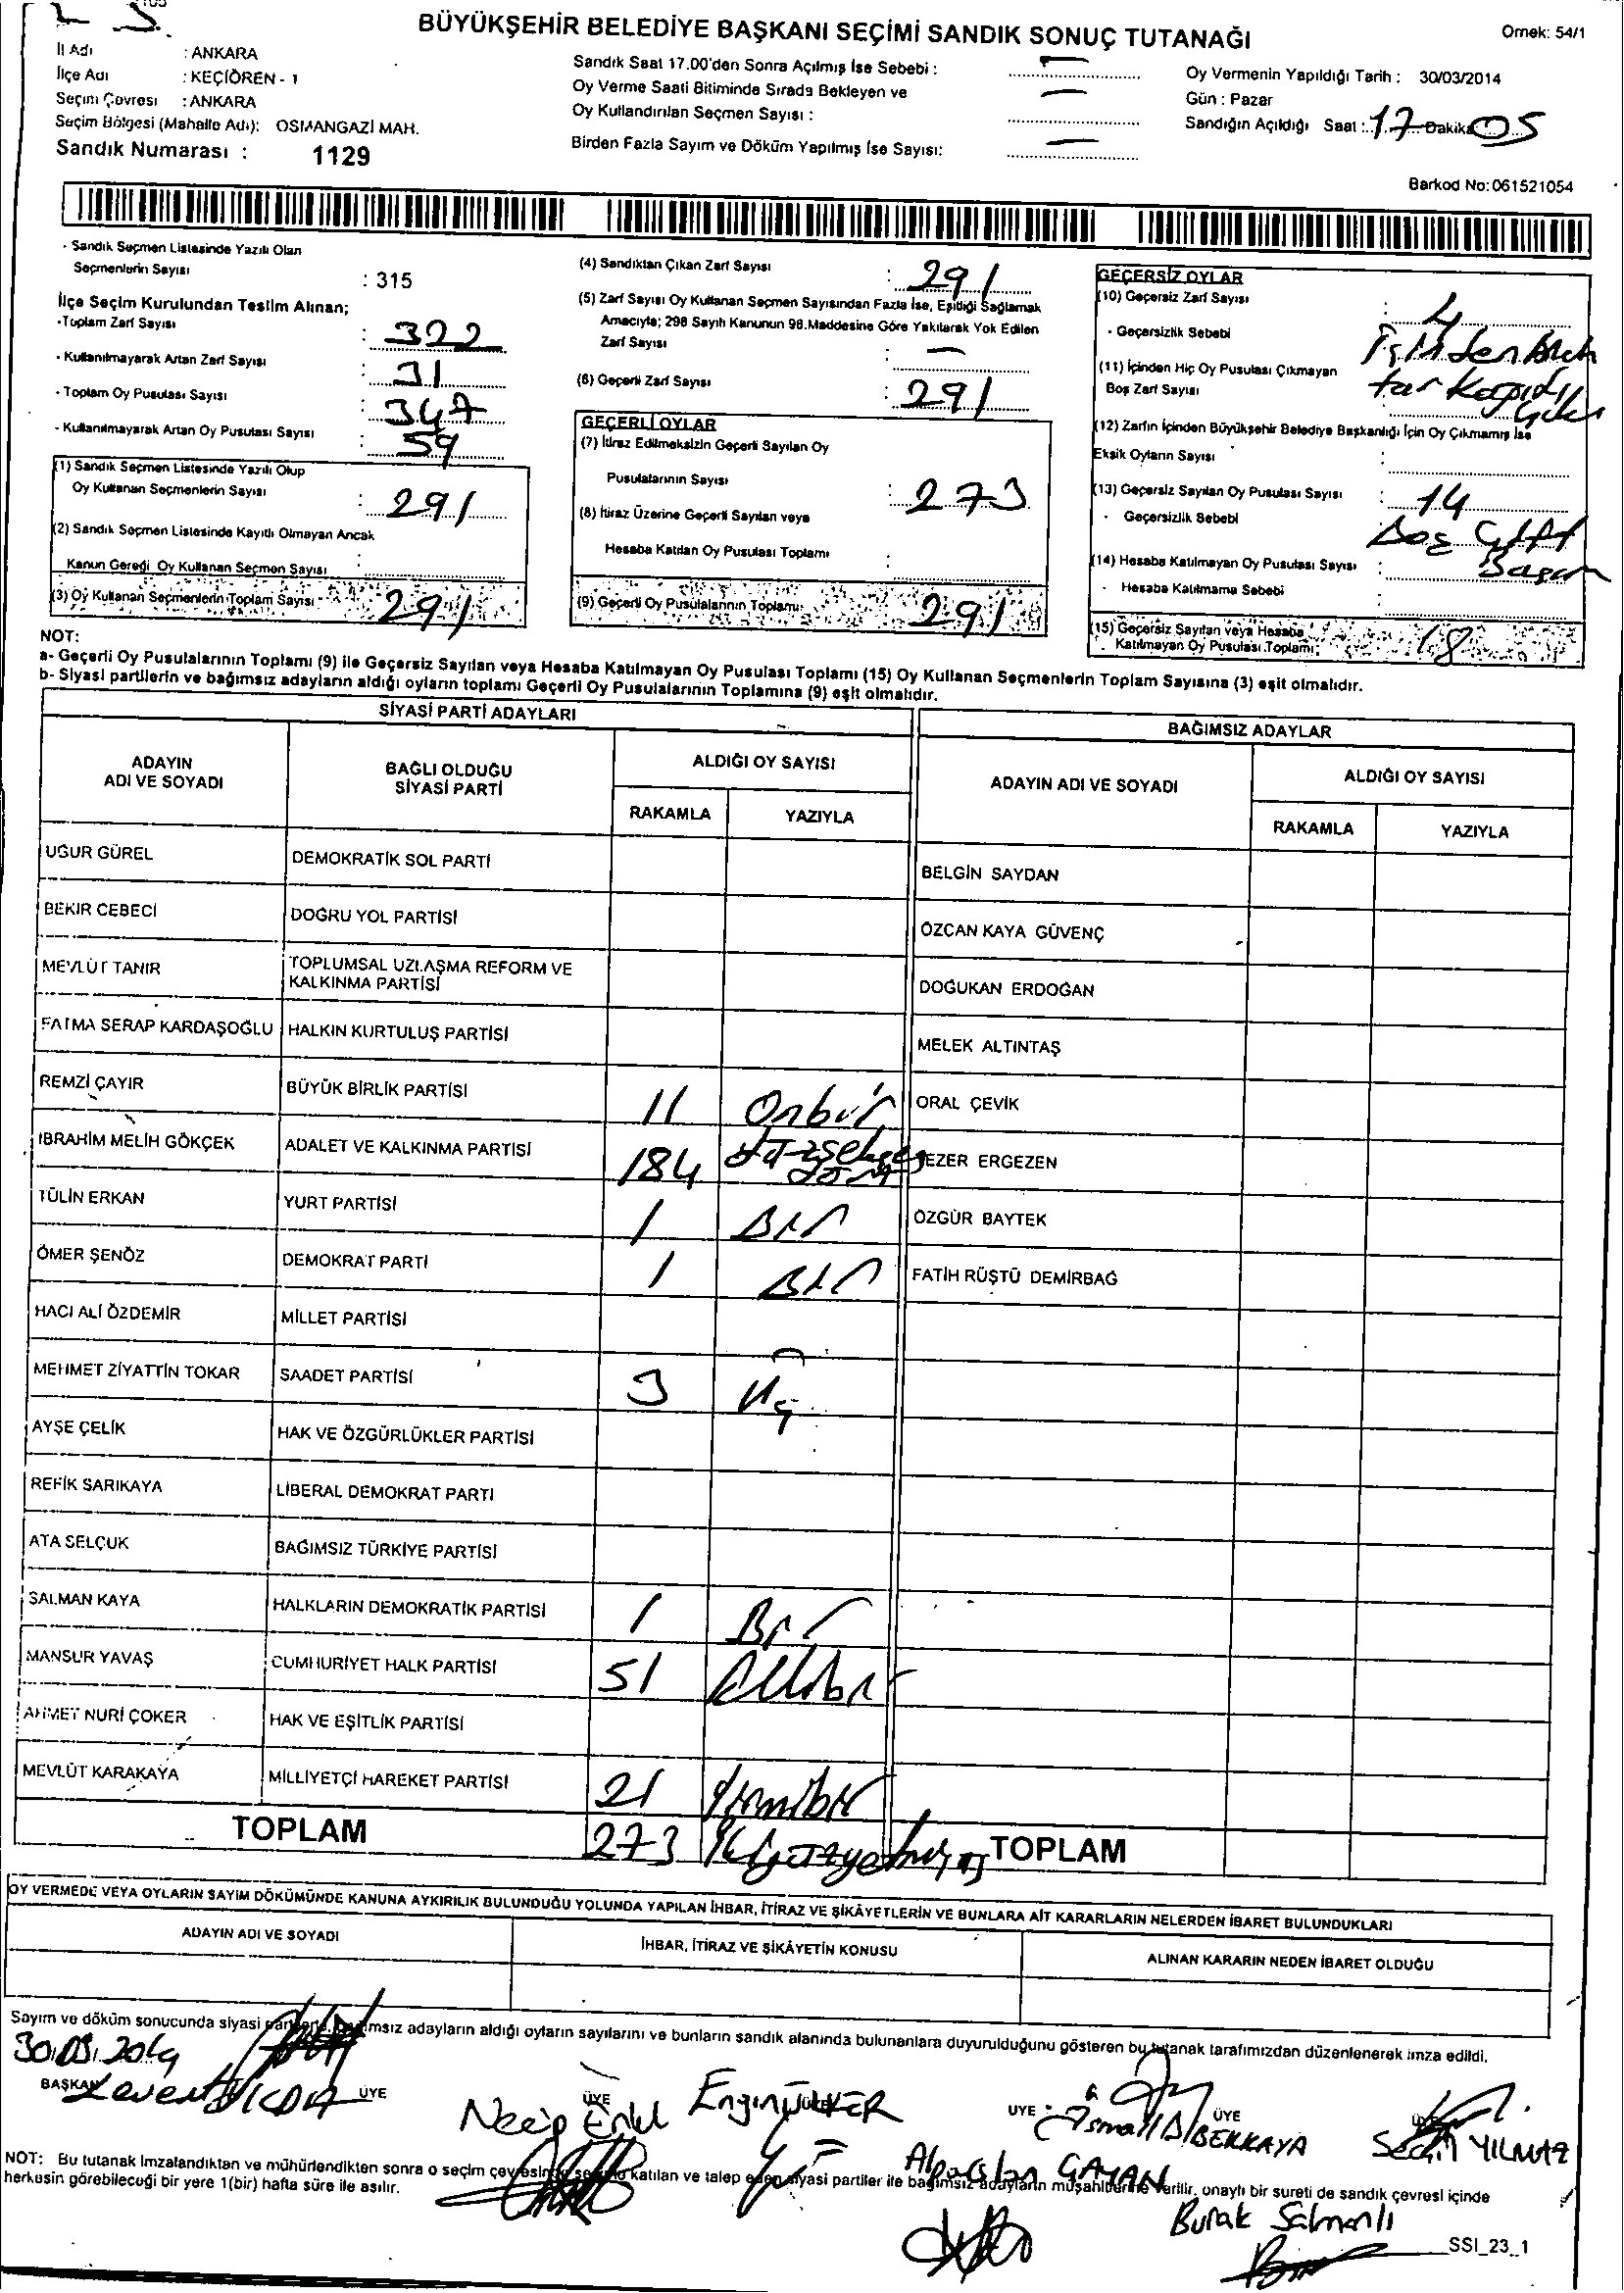 BÜYÜKŞEHİR BELEDİYE BAŞKANI SEÇİMİ SANDIK SONUÇ TUTANAĞI
Örnek: 54/1
İl Adı : ANKARA
İlçe Adı : KEÇİÖREN - 1
Seçim Çevresi : ANKARA
Seçim Bölgesi (Mahalle Adı): OSMANGAZİ MAH.
Sandık Numarası : 1129
Sandık Saat 17.00'den Sonra Açılmış İse Sebebi : —
Oy Verme Saati Bitiminde Sırada Bekleyen ve
Oy Kullandırılan Seçmen Sayısı : —
Birden Fazla Sayım ve Döküm Yapılmış İse Sayısı: —
Oy Vermenin Yapıldığı Tarih : 30/03/2014
Gün : Pazar
Sandığın Açıldığı Saat : 17 Dakika 05
Barkod No:061521054
- Sandık Seçmen Listesinde Yazılı Olan
Seçmenlerin Sayısı : 315
İlçe Seçim Kurulundan Teslim Alınan;
-Toplam Zarf Sayısı : 322
- Kullanılmayarak Artan Zarf Sayısı : 31
- Toplam Oy Pusulası Sayısı : 347
- Kullanılmayarak Artan Oy Pusulası Sayısı : 59
(1) Sandık Seçmen Listesinde Yazılı Olup
Oy Kullanan Seçmenlerin Sayısı : 291
(2) Sandık Seçmen Listesinde Kayıtlı Olmayan Ancak
Kanun Gereği Oy Kullanan Seçmen Sayısı :
(3) Oy Kullanan Seçmenlerin Toplam Sayısı 291
(4) Sandıktan Çıkan Zarf Sayısı : 291
(5) Zarf Sayısı Oy Kullanan Seçmen Sayısından Fazla İse, Eşitliği Sağlamak
Amacıyla; 298 Sayılı Kanunun 98.Maddesine Göre Yakılarak Yok Edilen
Zarf Sayısı : —
(6) Geçerli Zarf Sayısı : 291
GEÇERLİ OYLAR
(7) İtiraz Edilmeksizin Geçerli Sayılan Oy
Pusulalarının Sayısı : 273
(8) İtiraz Üzerine Geçerli Sayılan veya
Hesaba Katılan Oy Pusulası Toplamı :
(9) Geçerli Oy Pusulalarının Toplamı: 291
GEÇERSİZ OYLAR
(10) Geçersiz Zarf Sayısı : 4
- Geçersizlik Sebebi
(11) İçinden Hiç Oy Pusulası Çıkmayan
Boş Zarf Sayısı
(12) Zarfın İçinden Büyükşehir Belediye Başkanlığı İçin Oy Çıkmamış İse
Eksik Oyların Sayısı :
(13) Geçersiz Sayılan Oy Pusulası Sayısı : 14
- Geçersizlik Sebebi Boş Çift
(14) Hesaba Katılmayan Oy Pusulası Sayısı :
- Hesaba Katılmama Sebebi
(15) Geçersiz Sayılan veya Hesaba
Katılmayan Oy Pusulası Toplamı: 18
NOT:
a- Geçerli Oy Pusulalarının Toplamı (9) ile Geçersiz Sayılan veya Hesaba Katılmayan Oy Pusulası Toplamı (15) Oy Kullanan Seçmenlerin Toplam Sayısına (3) eşit olmalıdır.
b- Siyasi partilerin ve bağımsız adayların aldığı oyların toplamı Geçerli Oy Pusulalarının Toplamına (9) eşit olmalıdır.
SİYASİ PARTİ ADAYLARI
ADAYIN ADI VE SOYADI
BAĞLI OLDUĞU SİYASİ PARTİ
ALDIĞI OY SAYISI
RAKAMLA YAZIYLA
UĞUR GÜREL DEMOKRATİK SOL PARTİ
BEKİR CEBECİ DOĞRU YOL PARTİSİ
MEVLÜT TANIR TOPLUMSAL UZLAŞMA REFORM VE KALKINMA PARTİSİ
FATMA SERAP KARDAŞOĞLU HALKIN KURTULUŞ PARTİSİ
REMZİ ÇAYIR BÜYÜK BİRLİK PARTİSİ 11 Onbir
İBRAHİM MELİH GÖKÇEK ADALET VE KALKINMA PARTİSİ 184
TÜLİN ERKAN YURT PARTİSİ 1 Bir
ÖMER ŞENÖZ DEMOKRAT PARTİ 1 Bir
HACI ALİ ÖZDEMİR MİLLET PARTİSİ
MEHMET ZİYATTİN TOKAR SAADET PARTİSİ 3 Üç
AYŞE ÇELİK HAK VE ÖZGÜRLÜKLER PARTİSİ
REFİK SARIKAYA LİBERAL DEMOKRAT PARTİ
ATA SELÇUK BAĞIMSIZ TÜRKİYE PARTİSİ
SALMAN KAYA HALKLARIN DEMOKRATİK PARTİSİ 1 Bir
MANSUR YAVAŞ CUMHURİYET HALK PARTİSİ 51 Ellibir
AHMET NURİ ÇOKER HAK VE EŞİTLİK PARTİSİ
MEVLÜT KARAKAYA MİLLİYETÇİ HAREKET PARTİSİ 21 Yirmibir
TOPLAM 273
BAĞIMSIZ ADAYLAR
ADAYIN ADI VE SOYADI
ALDIĞI OY SAYISI
RAKAMLA YAZIYLA
BELGİN SAYDAN
ÖZCAN KAYA GÜVENÇ
DOĞUKAN ERDOĞAN
MELEK ALTINTAŞ
ORAL ÇEVİK
EZER ERGEZEN
ÖZGÜR BAYTEK
FATİH RÜŞTÜ DEMİRBAĞ
TOPLAM
OY VERMEDE VEYA OYLARIN SAYIM DÖKÜMÜNDE KANUNA AYKIRILIK BULUNDUĞU YOLUNDA YAPILAN İHBAR, İTİRAZ VE ŞİKÂYETLERİN VE BUNLARA AİT KARARLARIN NELERDEN İBARET BULUNDUKLARI
ADAYIN ADI VE SOYADI
İHBAR, İTİRAZ VE ŞİKÂYETİN KONUSU
ALINAN KARARIN NEDEN İBARET OLDUĞU
Sayım ve döküm sonucunda siyasi adayların aldığı oyların sayılarını ve bunların sandık alanında bulunanlara duyurulduğunu gösteren bu tutanak tarafımızdan düzenlenerek imza edildi.
30.03.2014
BAŞKAN ÜYE ÜYE ÜYE ÜYE
Levent
Necip
Engin
İsmail DİBEKKAYA
Seçil YILMAZ
Alparslan
Burak Salmanlı
NOT: Bu tutanak imzalandıktan ve mühürlendikten sonra o seçim çevresinde seçime katılan ve talep eden siyasi partiler ile bağımsız adayların müşahitlerine verilir, onaylı bir sureti de sandık çevresi içinde
herkesin görebileceği bir yere 1(bir) hafta süre ile asılır.
SSI_23_1